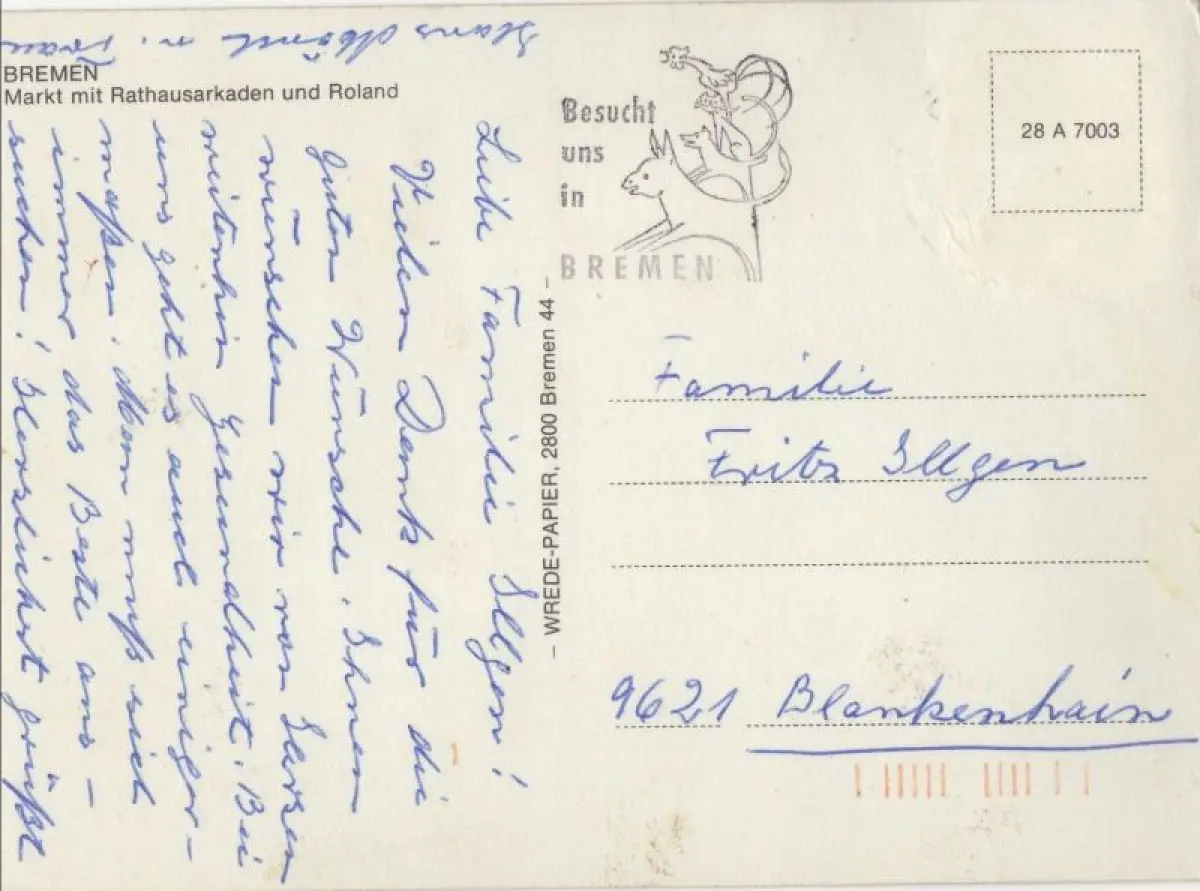 BREMEN
Markt mit Rathausarkaden und Roland
Liebe Familie Illgen!
Vielen Dank für die
guten Wünsche. Ihnen
wünschen wir von Herzen
weiterhin Gesundheit. Bei
uns geht es auch einiger-
maßen. Man muß sich
immer das Beste aus-
suchen! Herzlichst grüßt
Hans u. Frau
– WREDE-PAPIER, 2800 Bremen 44 –
Besucht
uns
in
BREMEN
28 A 7003
Familie
Fritz Illgen
9621 Blankenhain